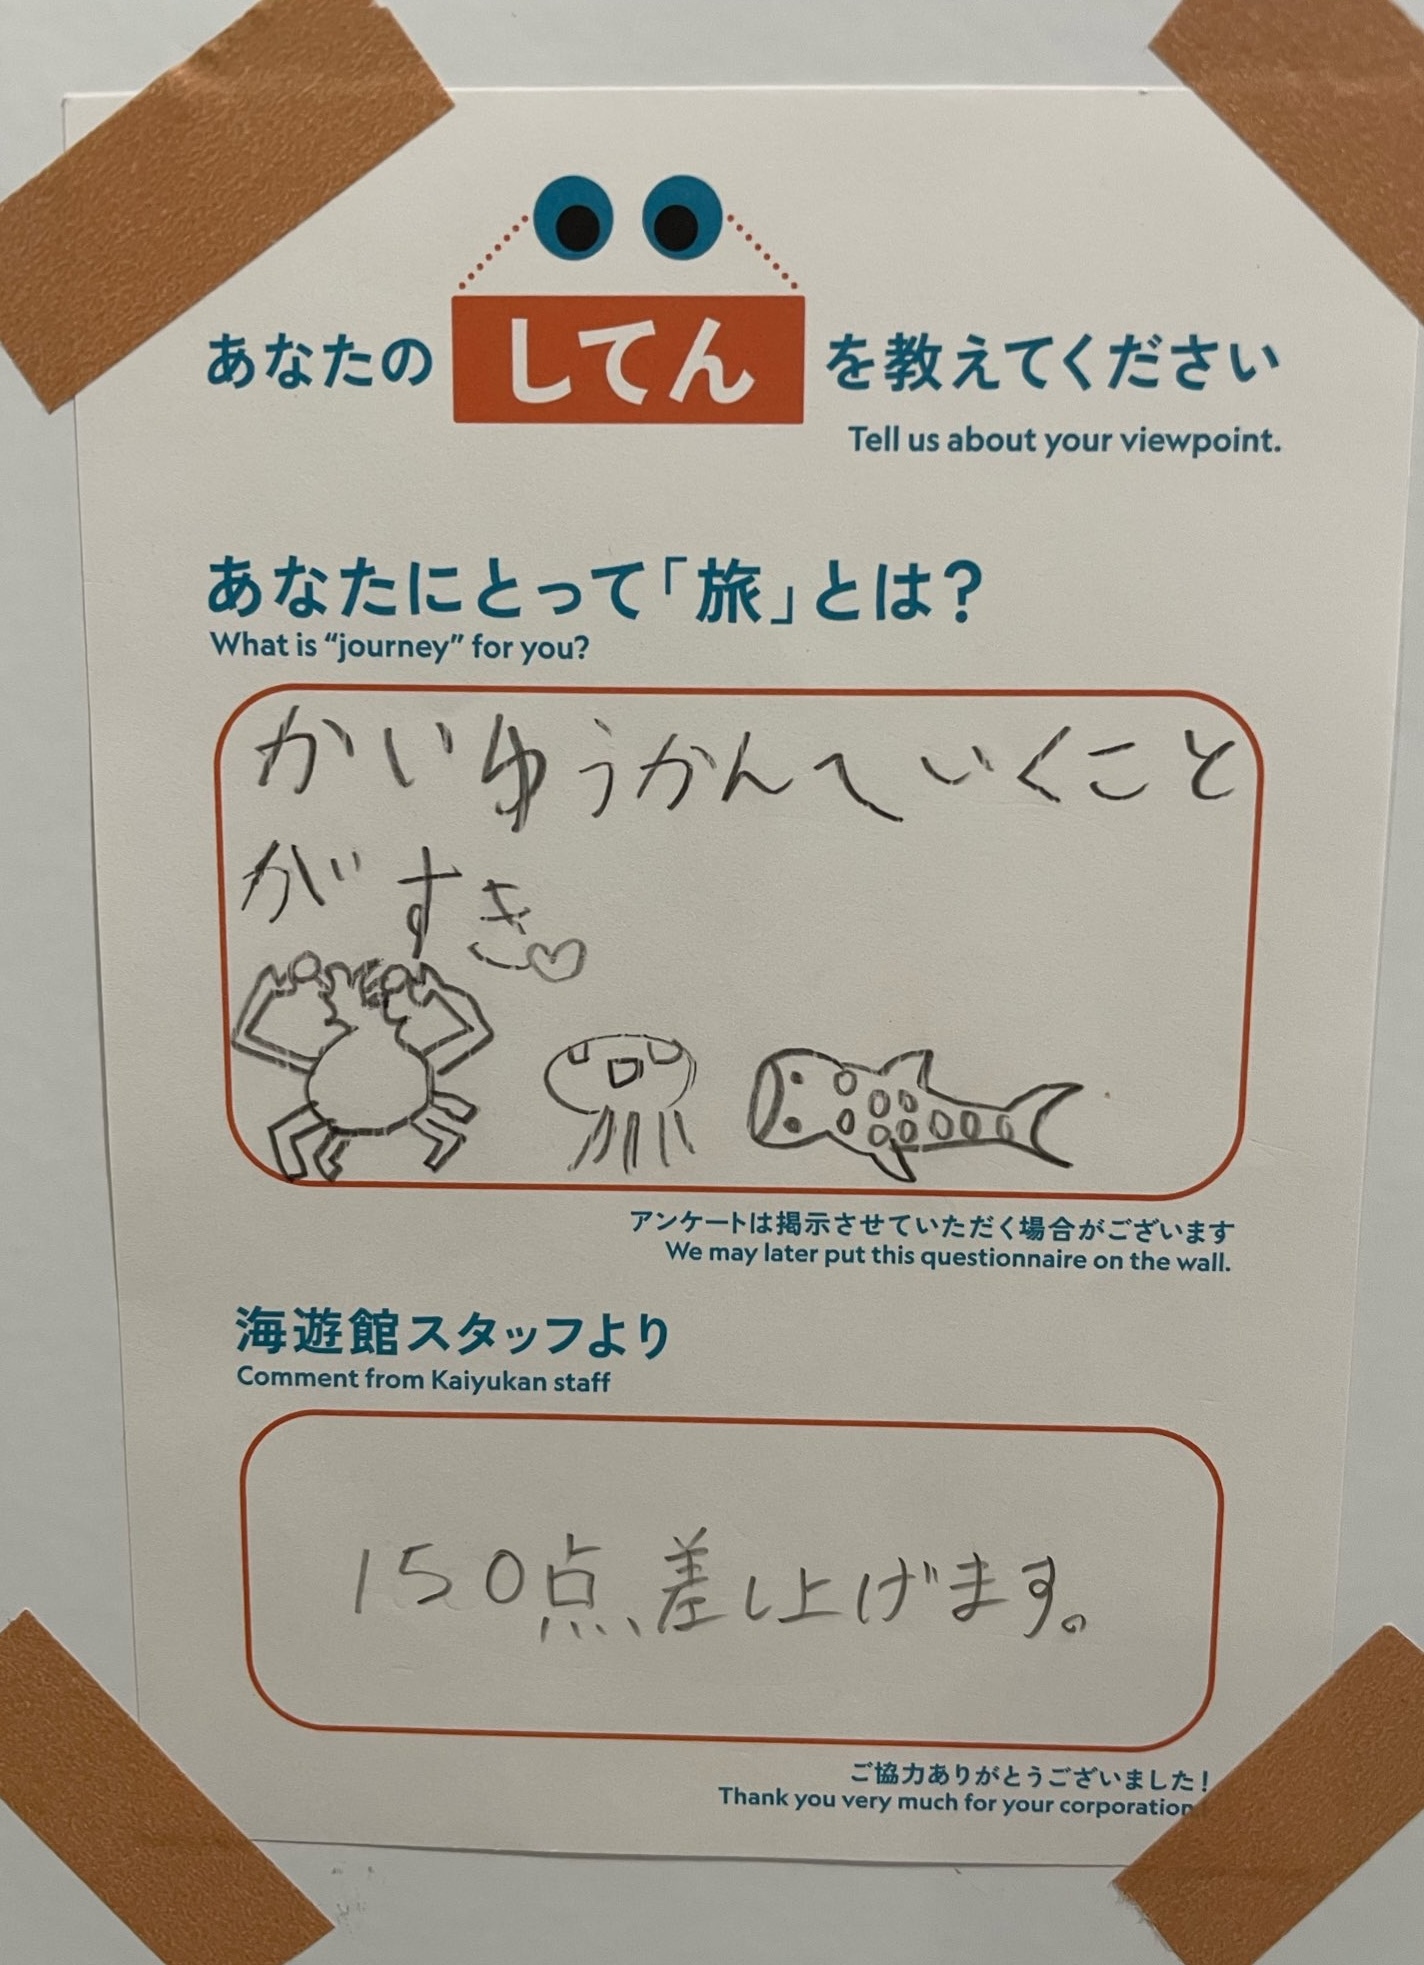 あなたの してん を教えてください
Tell us about your viewpoint.
あなたにとって「旅」とは？
What is “journey” for you?
かいゆうかんへいくこと
がすき♡
アンケートは掲示させていただく場合がございます
We may later put this questionnaire on the wall.
海遊館スタッフより
Comment from Kaiyukan staff
150点、差し上げます。
ご協力ありがとうございました！
Thank you very much for your corporation